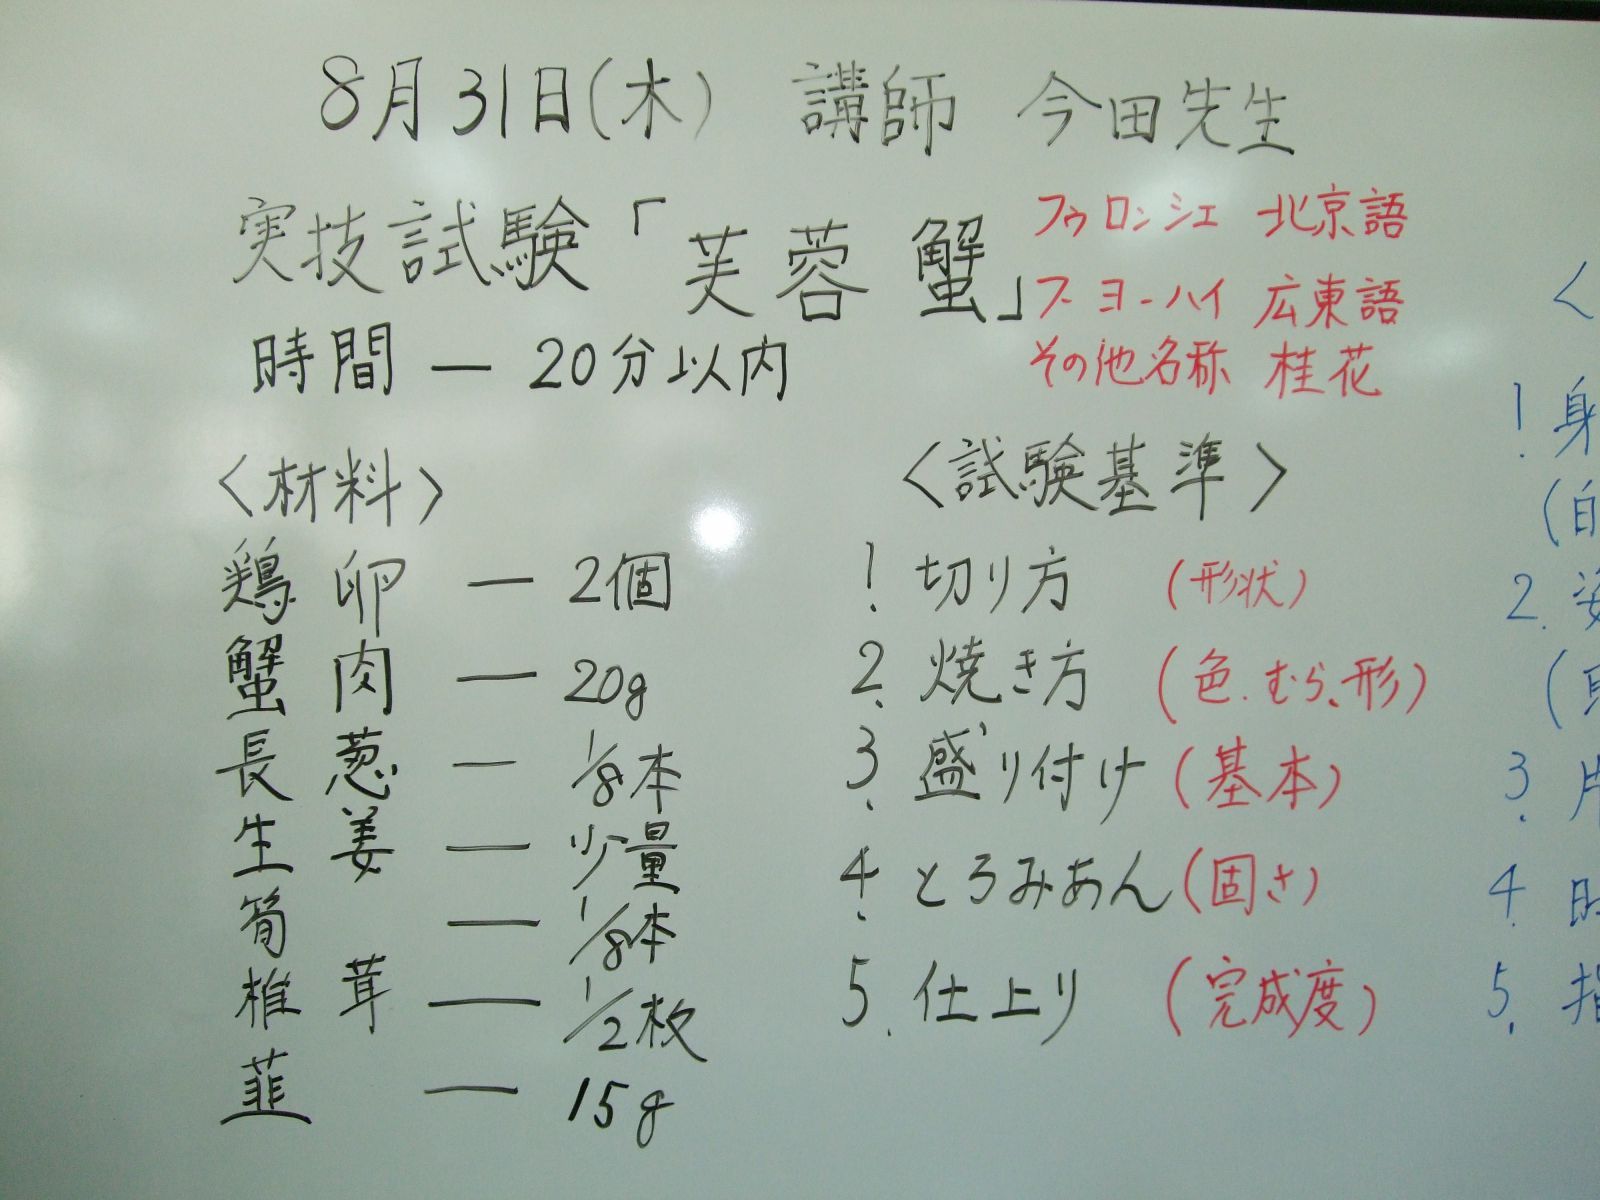 8月31日(木) 講師 今田先生
実技試験「芙蓉蟹」
フゥロンシェ 北京語
フーヨーハイ 広東語
その他名称 桂花
時間 ― 20分以内
<材料>
鶏卵 ― 2個
蟹肉 ― 20g
長葱 ― 1/8本
生姜 ― 少量
筍 ― 1/8本
椎茸 ― 1/2枚
韮 ― 15g
<試験基準>
1. 切り方 (形状)
2. 焼き方 (色、むら、形)
3. 盛り付け (基本)
4. とろみあん (固さ)
5. 仕上り (完成度)
<
1. 身
2.
3. 片
4.
5. 指